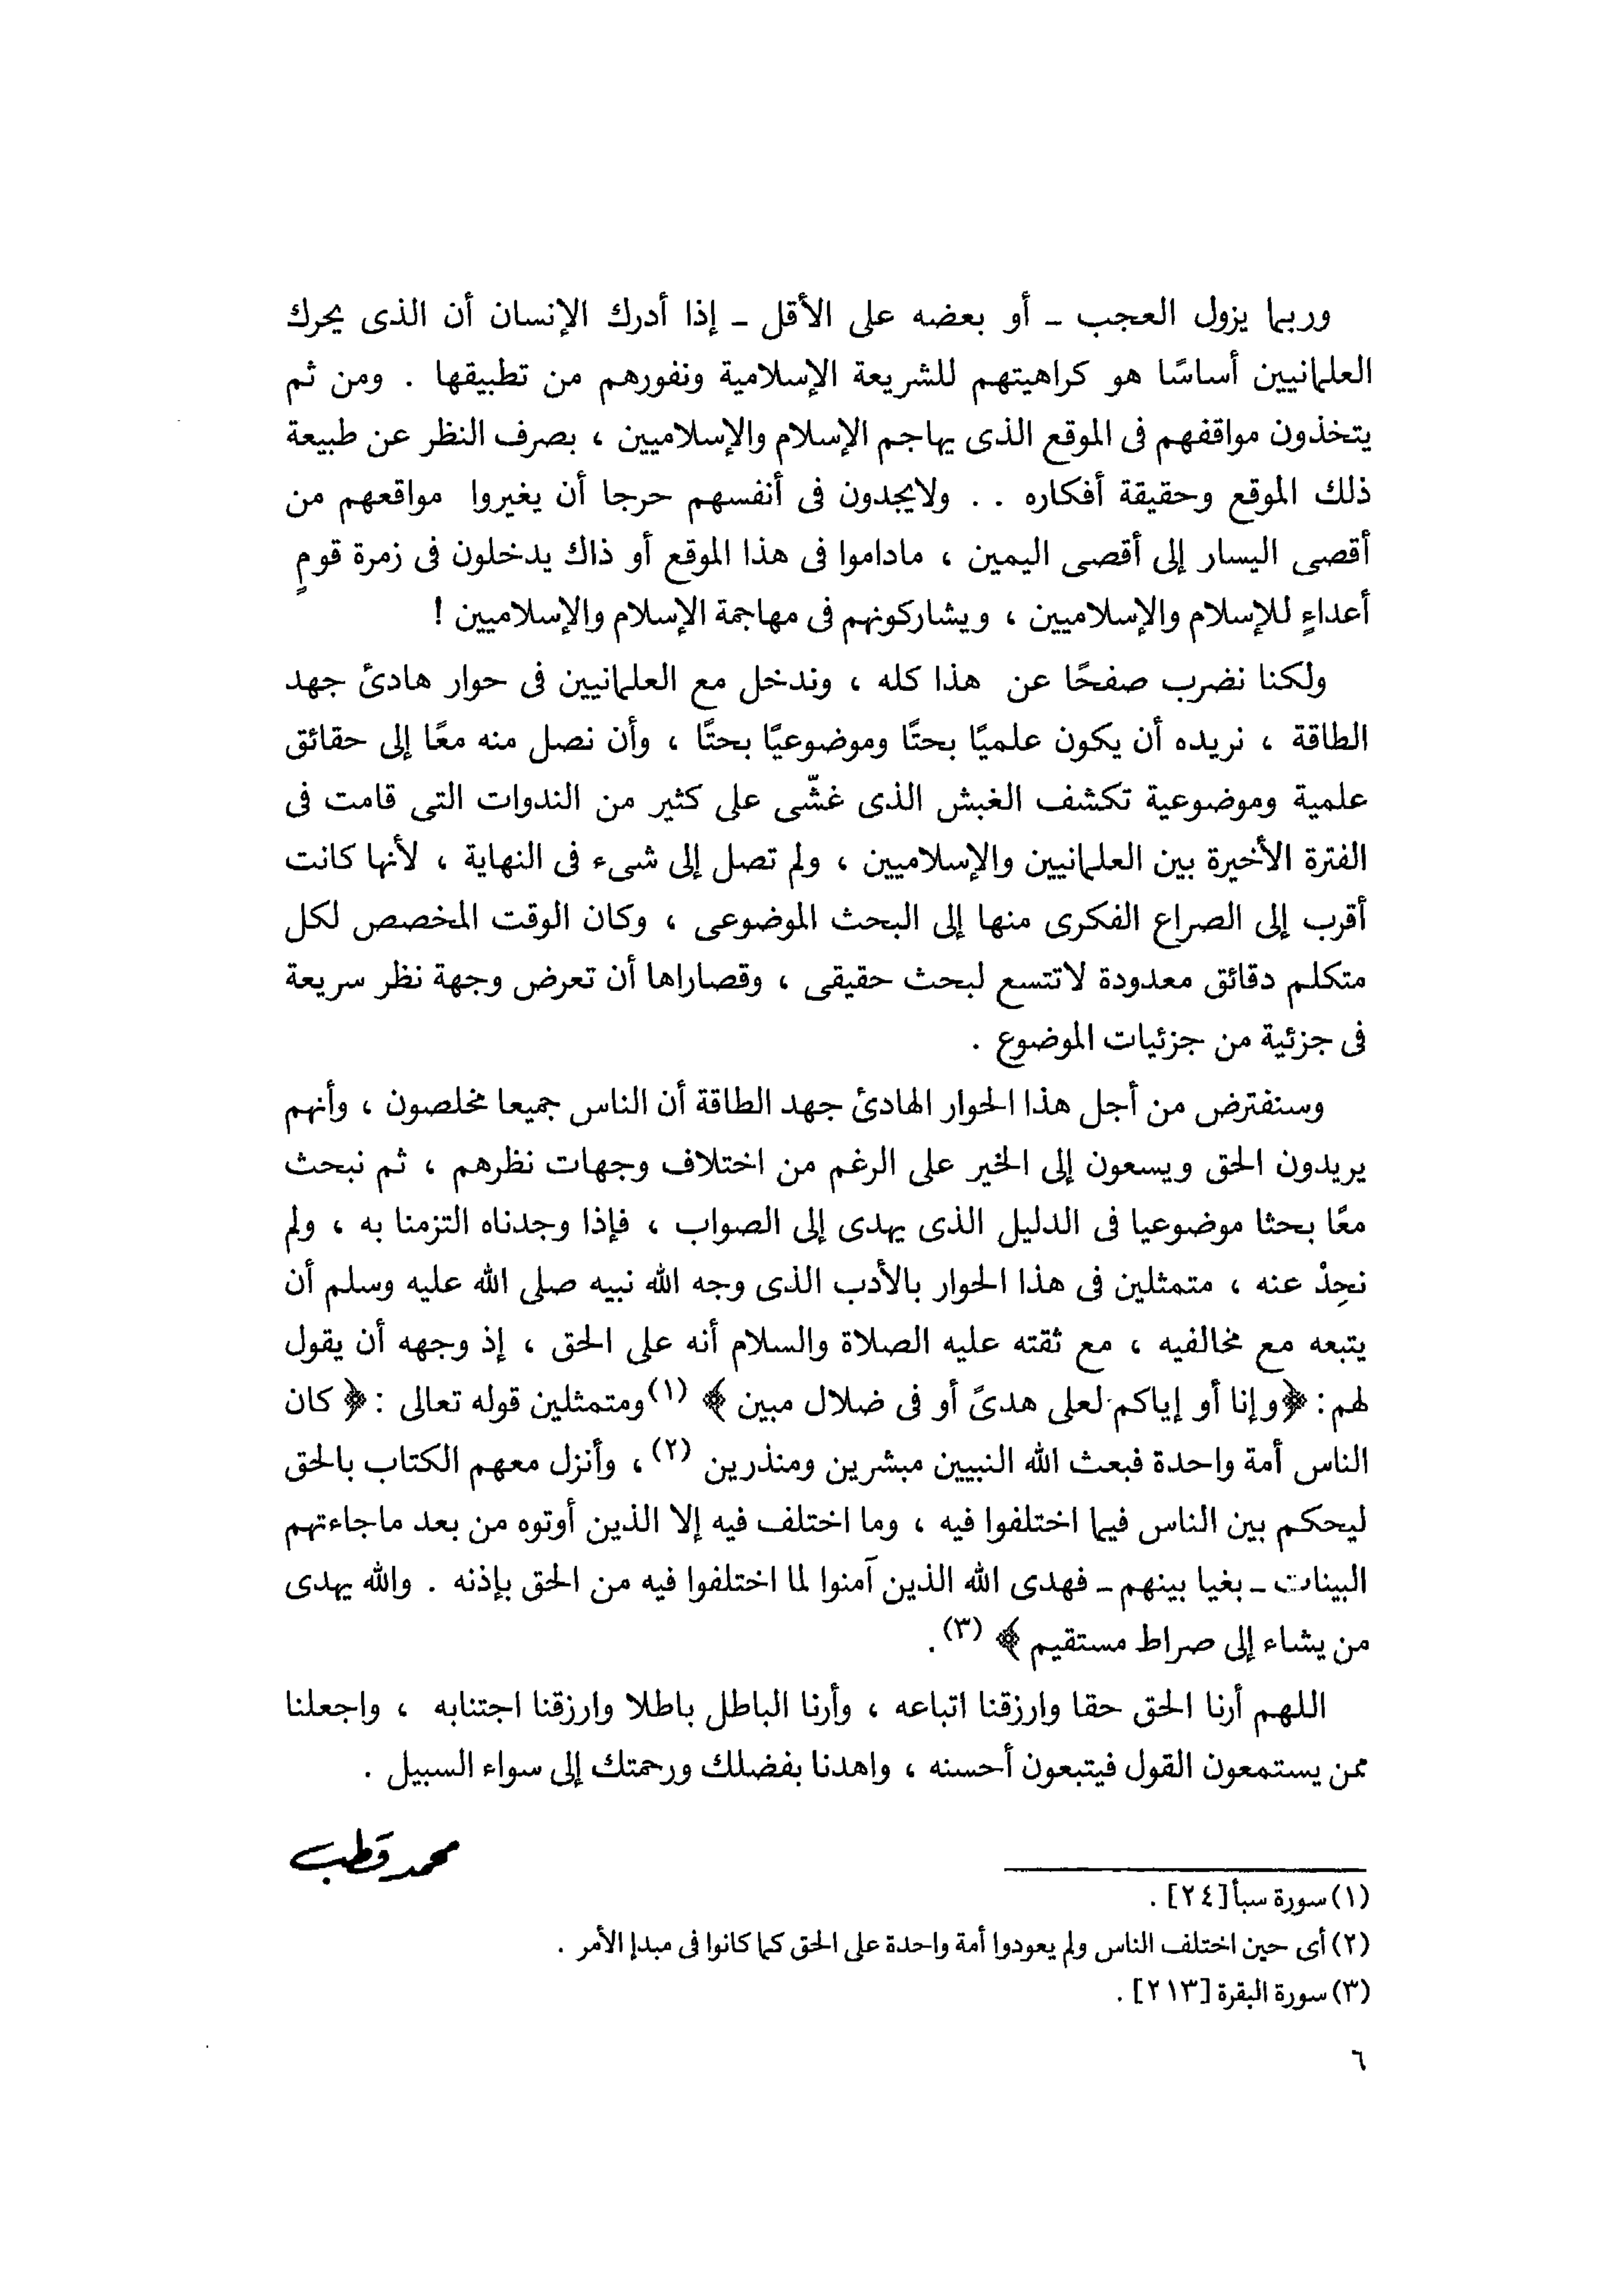 وربما يزول العجب ـ أو بعضه على الأقل ـ إذا أدرك الإنسان أن الذى يحرك
العلمانيين أساسًا هو كراهيتهم للشريعة الإسلامية ونفورهم من تطبيقها . ومن ثم
يتخذون مواقفهم فى الموقع الذى يهاجم الإسلام والإسلاميين ، بصرف النظر عن طبيعة
ذلك الموقع وحقيقة أفكاره . . ولايجدون فى أنفسهم حرجا أن يغيروا مواقعهم من
أقصى اليسار إلى أقصى اليمين ، ماداموا فى هذا الموقع أو ذاك يدخلون فى زمرة قومٍ
أعداءٍ للإسلام والإسلاميين ، ويشاركونهم فى مهاجمة الإسلام والإسلاميين !
ولكنا نضرب صفحًا عن هذا كله ، وندخل مع العلمانيين فى حوار هادئ جهد
الطاقة ، نريده أن يكون علميًا بحتًا وموضوعيًا بحتًا ، وأن نصل منه معًا إلى حقائق
علمية وموضوعية تكشف الغبش الذى غشّى على كثير من الندوات التى قامت فى
الفترة الأخيرة بين العلمانيين والإسلاميين ، ولم تصل إلى شىء فى النهاية ، لأنها كانت
أقرب إلى الصراع الفكرى منها إلى البحث الموضوعى ، وكان الوقت المخصص لكل
متكلم دقائق معدودة لاتتسع لبحث حقيقى ، وقصاراها أن تعرض وجهة نظر سريعة
فى جزئية من جزئيات الموضوع .
وسنفترض من أجل هذا الحوار الهادئ جهد الطاقة أن الناس جميعا مخلصون ، وأنهم
يريدون الحق ويسعون إلى الخير على الرغم من اختلاف وجهات نظرهم ، ثم نبحث
معًا بحثا موضوعيا فى الدليل الذى يهدى إلى الصواب ، فإذا وجدناه التزمنا به ، ولم
نحِدْ عنه ، متمثلين فى هذا الحوار بالأدب الذى وجه الله نبيه صلى الله عليه وسلم أن
يتبعه مع مخالفيه ، مع ثقته عليه الصلاة والسلام أنه على الحق ، إذ وجهه أن يقول
لهم : ﴿وإنا أو إياكم لعلى هدىً أو فى ضلال مبين ﴾ (١) ومتمثلين قوله تعالى : ﴿ كان
الناس أمة واحدة فبعث الله النبيين مبشرين ومنذرين (٢) ، وأنزل معهم الكتاب بالحق
ليحكم بين الناس فيما اختلفوا فيه ، وما اختلف فيه إلا الذين أوتوه من بعد ماجاءتهم
البينات ـ بغيا بينهم ـ فهدى الله الذين آمنوا لما اختلفوا فيه من الحق بإذنه . والله يهدى
من يشاء إلى صراط مستقيم ﴾ (٣) .
اللهم أرنا الحق حقا وارزقنا اتباعه ، وأرنا الباطل باطلا وارزقنا اجتنابه ، واجعلنا
ممن يستمعون القول فيتبعون أحسنه ، واهدنا بفضلك ورحمتك إلى سواء السبيل .
محمد قطب
(١) سورة سبأ [٢٤] .
(٢) أى حين اختلف الناس ولم يعودوا أمة واحدة على الحق كما كانوا فى مبدإ الأمر .
(٣) سورة البقرة [٢١٣] .
٦